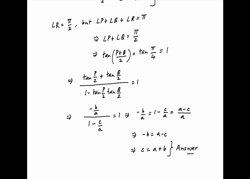 ∠R = π/2, but ∠P + ∠Q + ∠R = π
⇒ ∠P + ∠Q = π/2
⇒ tan((P+Q)/2) = tan π/4 = 1
⇒ (tan P/2 + tan Q/2)/(1 - tan P/2 tan Q/2) = 1
⇒ (-b/a)/(1 - c/a) = 1 ⇒ -b/a = 1 - c/a = (a-c)/a
⇒ -b = a-c
⇒ c = a+b } Answer